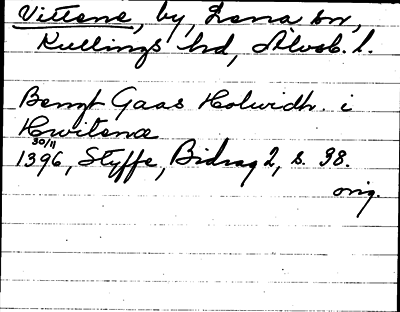 Vittene, by, Lena sn,
Kullings hd, Älvsb. l.
Bengt Gaas Holwidh. i
Hwitenæ
30/11
1396, Styffe, Bidrag 2, s. 38.
orig.